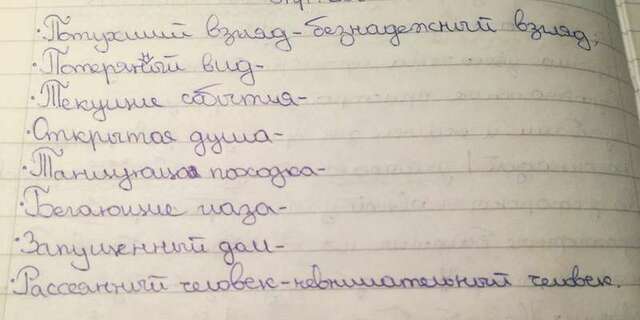 ·Потухший взгляд-безнадежный взгляд,
·Потерянный вид-
·Текущие события-
·Открытая душа-
·Танцующая походка-
·Бегающие глаза-
·Запущенный дом-
·Рассеянный человек-невнимательный человек.